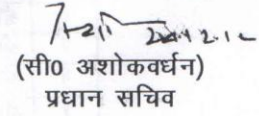 (सी0 अशोकवर्धन)
प्रधान सचिव